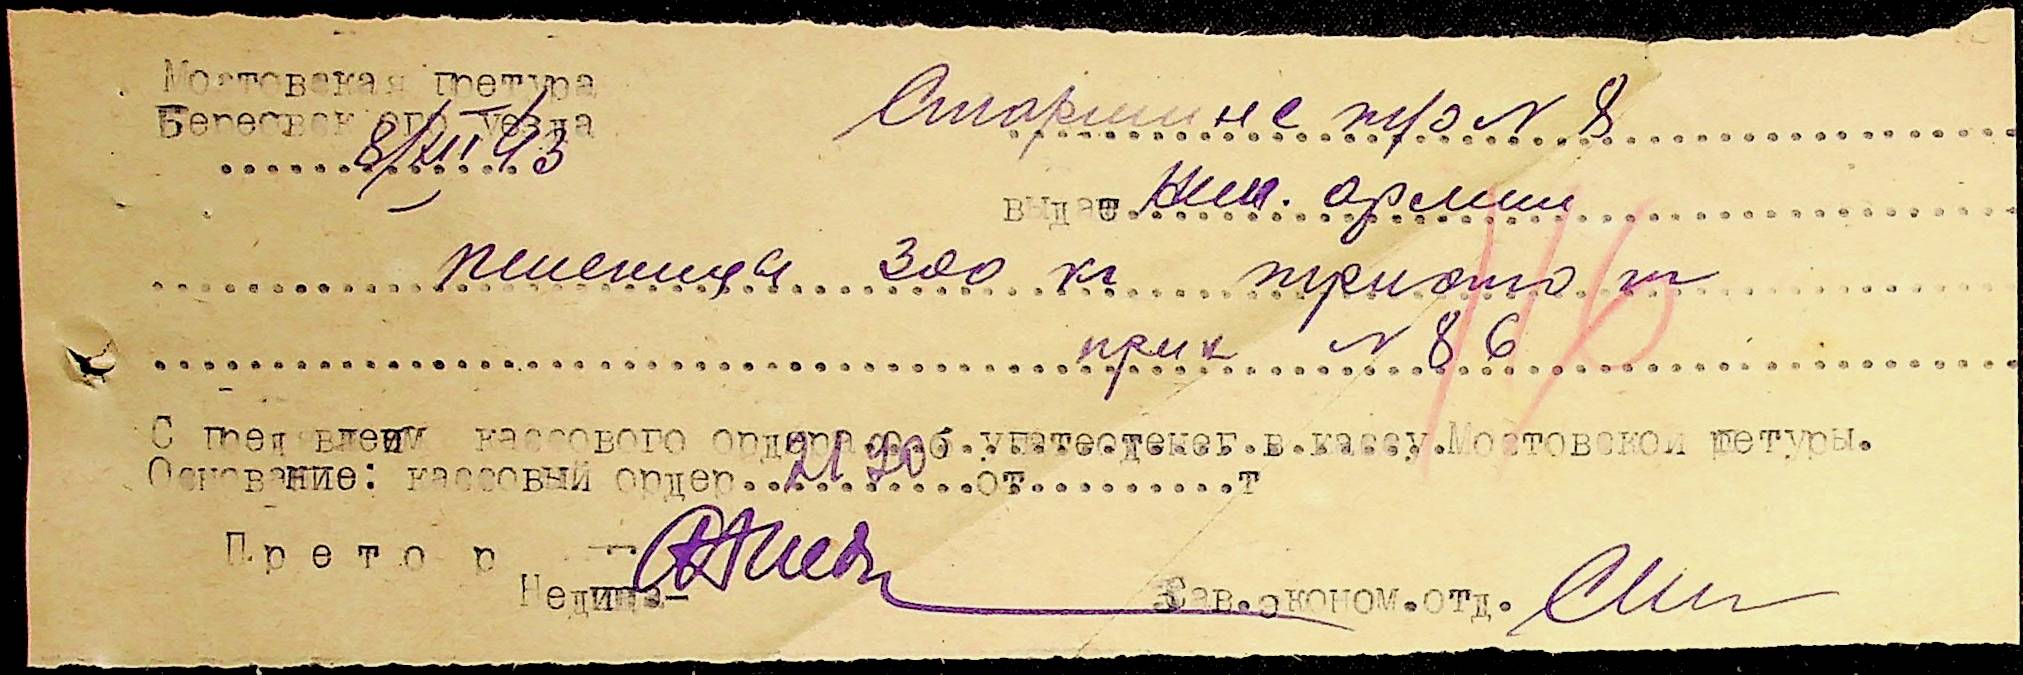 Мостовская претура
Березовского уезда
8/XII 43
Старшине т/о N 8
выдат Жит. армии
пшеница 300 кг триста кг
прик N 86
С пред'явлеим кассового ордера об.уплате.денег.в.кассу.Мостовской петуры.
Основание: кассовый ордер 2120 от..........т
Претор —
Недица-
Зав.эконом.отд.
116